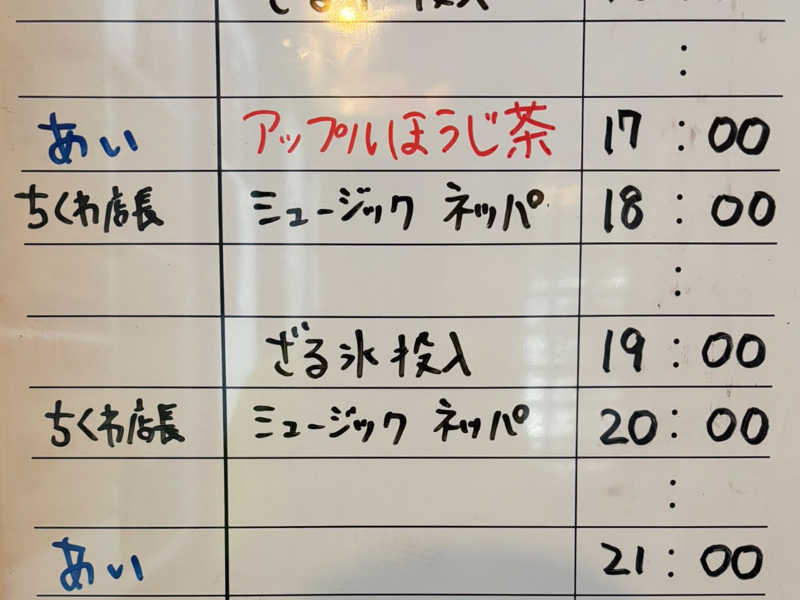 :
あい アップルほうじ茶 17:00
ちくわ店長 ミュージック ネッパ 18:00
:
ざる氷投入 19:00
ちくわ店長 ミュージック ネッパ 20:00
:
あい 21:00